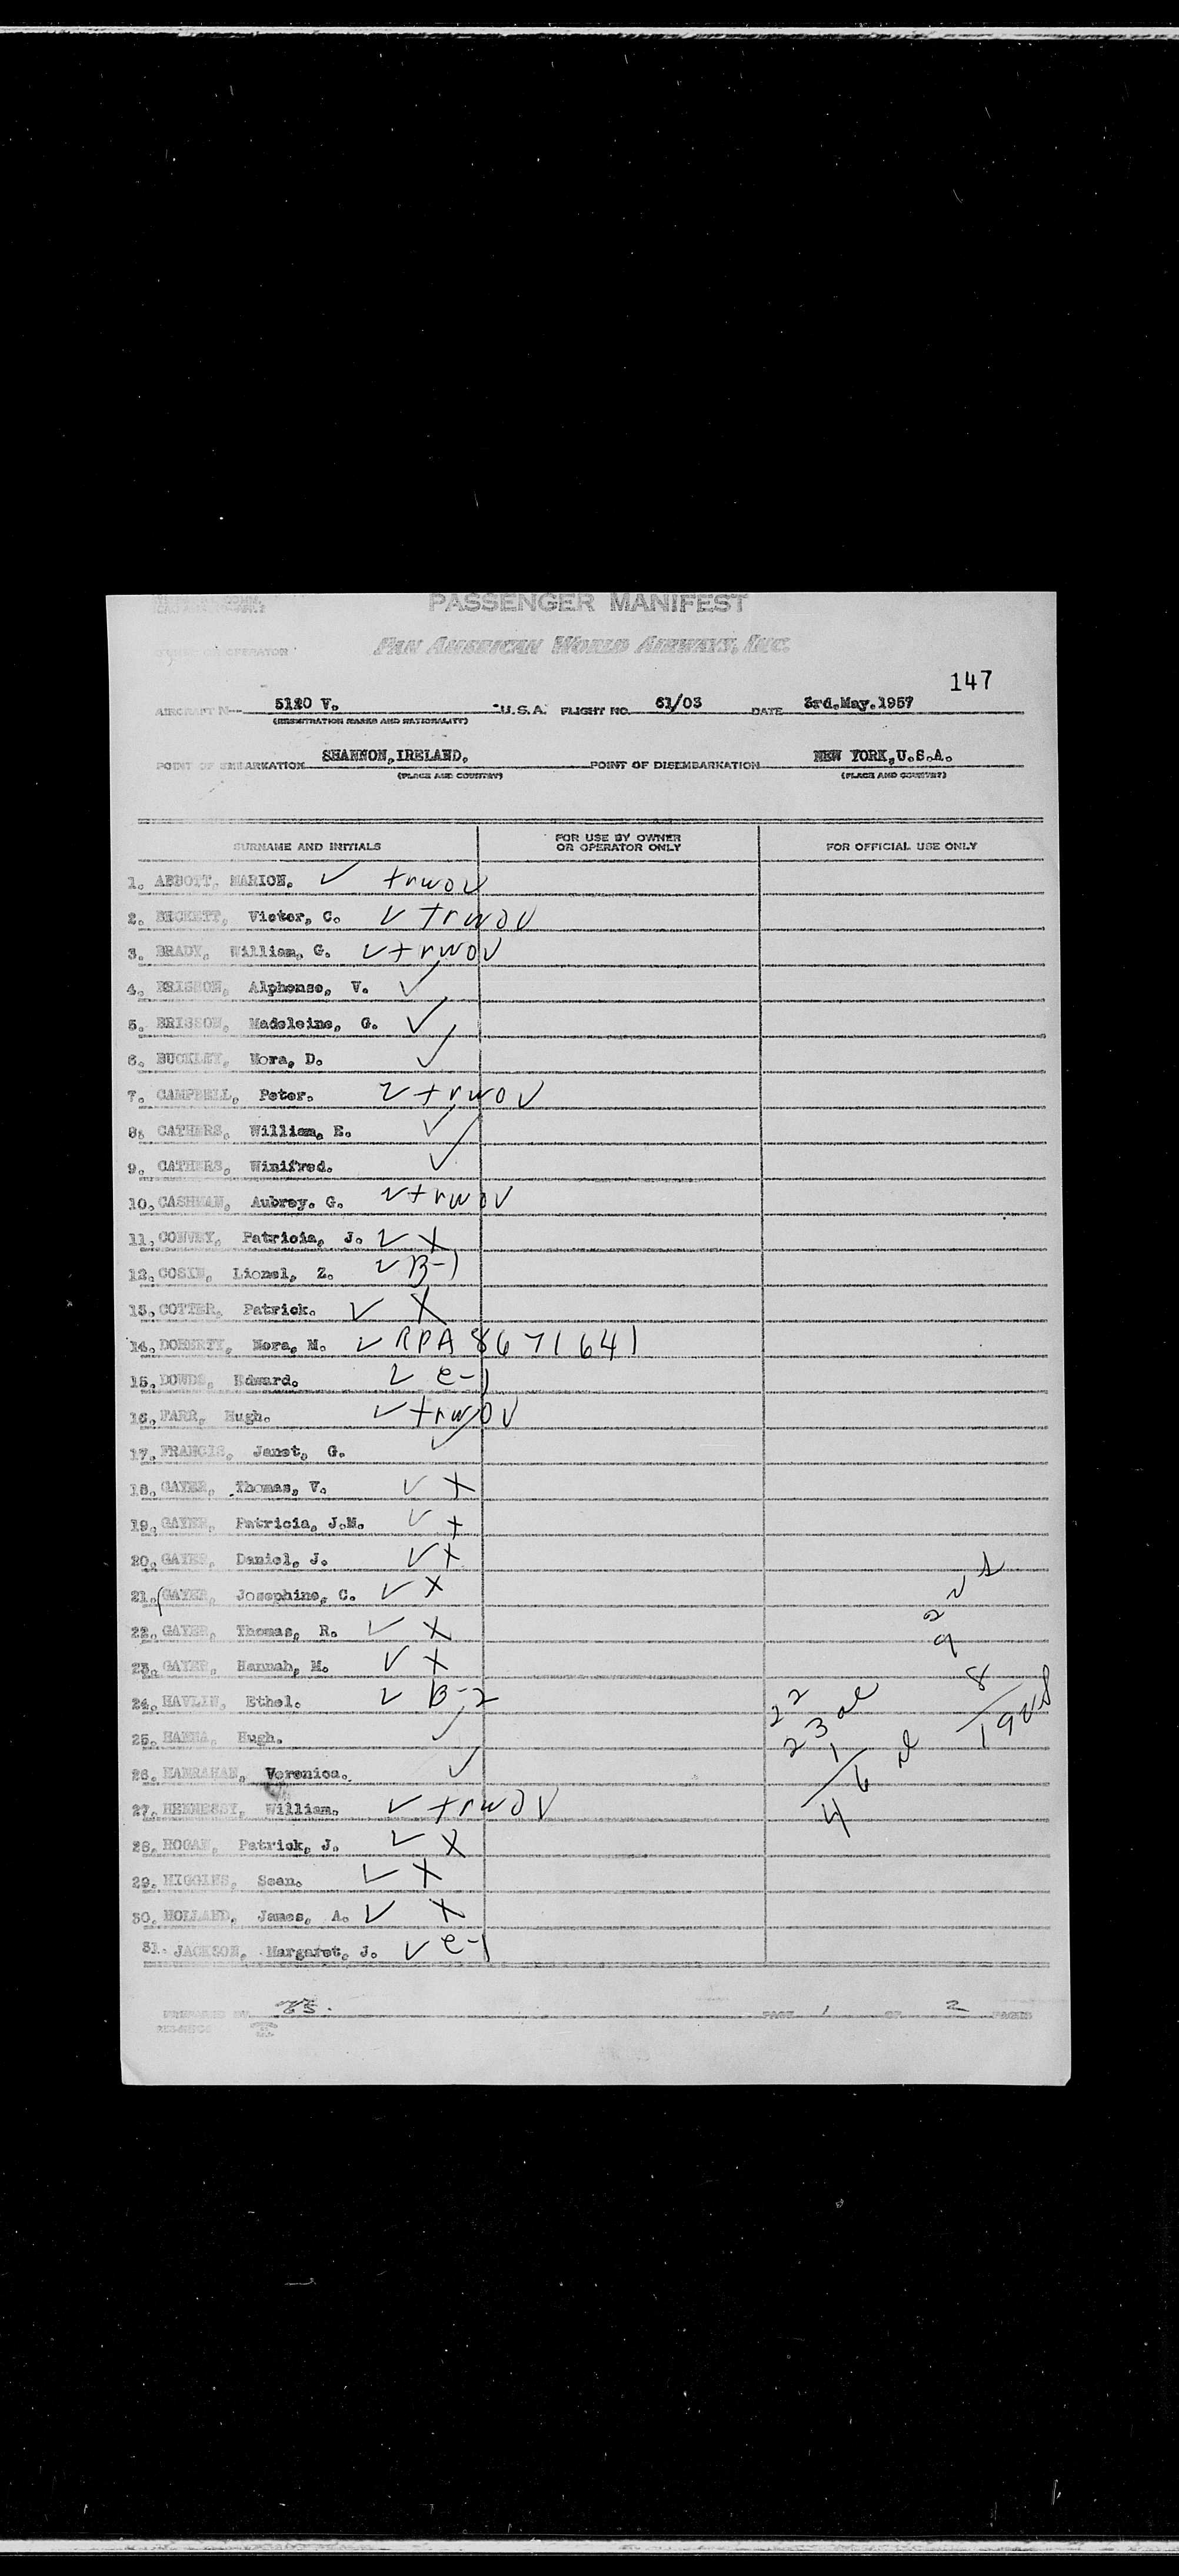 PASSENGER MANIFEST
PAN AMERICAN WORLD AIRWAYS, INC.
OPERATOR
147
AIRCRAFT N— 5120 V. U.S.A. FLIGHT NO. 61/03 DATE 3rd.May.1957
(REGISTRATION MARKS AND NATIONALITY)
POINT OF EMBARKATION SHANNON,IRELAND. POINT OF DISEMBARKATION NEW YORK,U.S.A.
(PLACE AND COUNTRY) (PLACE AND COUNTRY)
SURNAME AND INITIALS FOR USE BY OWNER OR OPERATOR ONLY FOR OFFICIAL USE ONLY
1. ABBOTT, MARION. ✓ trwov
2. BECKETT, Victor, C. ✓ trwov
3. BRADY, William, G. ✓ trwov
4. BRISSON, Alphonse, V. ✓
5. BRISSON, Madeleine, G. ✓
6. BUCKLEY, Nora, D. ✓
7. CAMPBELL, Peter. ✓ trwov
8. CATHERS, William, E. ✓
9. CATHERS, Winifred. ✓
10. CASHMAN, Aubrey. G. ✓ trwov
11. CONVEY, Patricia, J. ✓ X
12. COSIN, Lionel, Z. ✓ B-1
13. COTTER, Patrick. ✓ X
14. DOHERTY, Nora, M. ✓ RPA 8671641
15. DOWDS, Edward. ✓ e-1
16. FARR, Hugh. ✓ trwov
17. FRANCIS, Janet, G. ✓
18. GAYER, Thomas, V. ✓ X
19. GAYER, Patricia, J.M. ✓ X
20. GAYER, Daniel, J. ✓ X
21. GAYER, Josephine, C. ✓ X
22. GAYER, Thomas, R. ✓ X
23. GAYER, Hannah, M. ✓ X
24. HAVLIN, Ethel. ✓ B-2
25. HANNA, Hugh. ✓
26. HANRAHAN, Veronica. ✓
27. HENNESSY, William. ✓ trwov
28. HOGAN, Patrick, J. ✓ X
29. HIGGINS, Sean. ✓ X
30. HOLLAND, James, A. ✓ X
31. JACKSON, Margaret, J. ✓ e-1
9
2
8
19
22
23
1
46
PREPARED BY PAGE 1 OF 2 PAGES